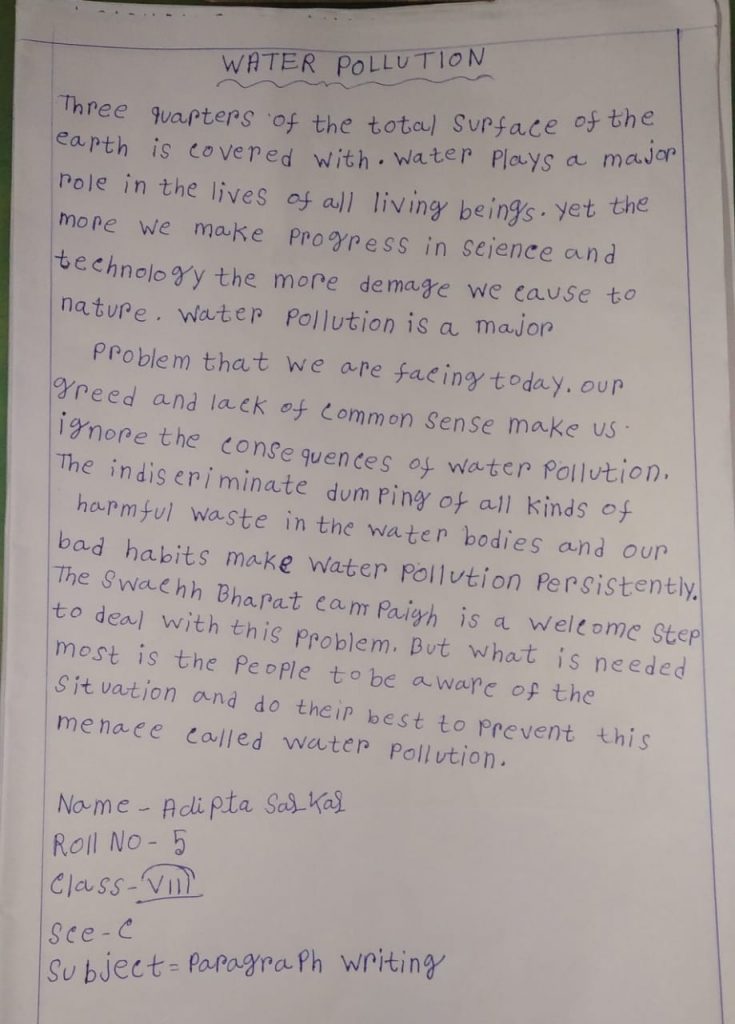 WATER POLLUTION
Three quarters of the total surface of the
earth is covered with. Water plays a major
role in the lives of all living beings. yet the
more we make progress in science and
technology the more demage we cause to
nature. Water pollution is a major
problem that we are facing today. our
greed and lack of common sense make us
ignore the consequences of water pollution.
The indiscriminate dumping of all kinds of
harmful waste in the water bodies and our
bad habits make water pollution persistently.
The Swachh Bharat campaigh is a welcome step
to deal with this problem. But what is needed
most is the people to be aware of the
situation and do their best to prevent this
menace called water pollution.
Name - Adipta Sarkar
Roll No - 5
Class - VIII
Sec - C
Subject = Paragraph writing